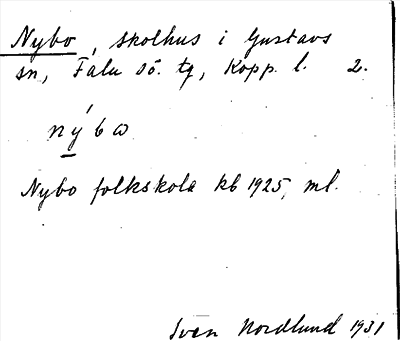 Nybo, skolhus i Gustavs
sn, Falu sö. tg, Kopp. l. 2.
nýbω
Nybo folkskola kb 1925, ml.
Sven Nordlund 1931